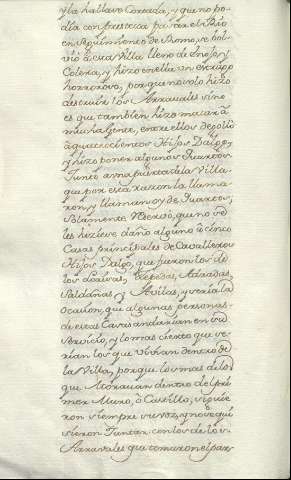 y la hallave Cortada, y que no po-
dia con presteza pasar el Rio
en seguimiento de Ramo, se bol-
vio à esta Villa lleno de enojo, y
Colera, y hizo en ella un estrago
horroroso, porque no solo hizo
destruir los Arravales sino
es que tambien hizo matar à
mucha gente, entre ellos degollò
à quatrocientos Hijos Dalgo,
y hizo poner algunos Quartos
Junto à una puerta de la Villa
que por esta razon la llama-
ron, y llaman oy de Quartos,
Solamente reservò, que no se
les hiziese daño alguno à cinco
Casas principales de Cavalleros
Hijos Dalgo, que fueron los de
los Loaisas, Zepedas, Adradas,
Saldañas, y Avilas, y seria la
ocasion, que algunas personas
de estas Casas andarian en su
servicio, y lo mas cierto que se-
rian los que vivian dentro de
la Villa, porque los mas de los
que Moravan dentro del pri-
mer Muro, ò Castillo, siguie-
ron siempre su voz, y no se qui
sieron Juntar con los de los
Arravales que tomaron el par-